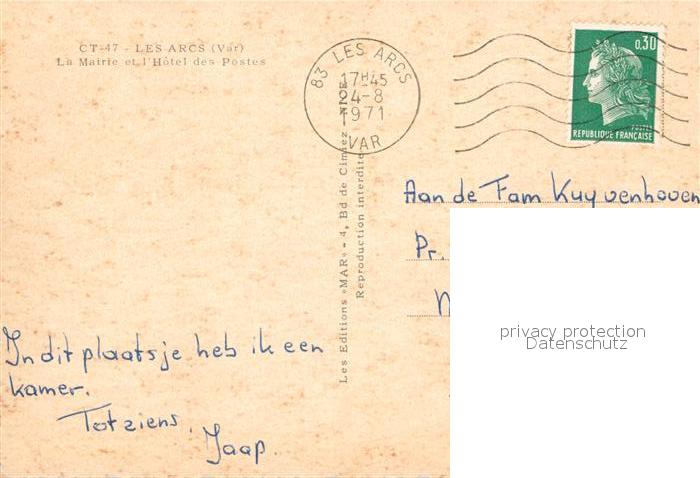 CT-47 - LES ARCS (Var)
La Mairie et l'Hôtel des Postes
83 LES ARCS
17H45
24-8
1971
VAR
0,30
POSTES
REPUBLIQUE FRANÇAISE
Les Editions «MAR» - 4, Bd de Cimiez - NICE
Reproduction interdite
Aan de Fam Kuyvenhoven
Pr.
privacy protection
Datenschutz
In dit plaatsje heb ik een
kamer.
Tot ziens.
Jaap.